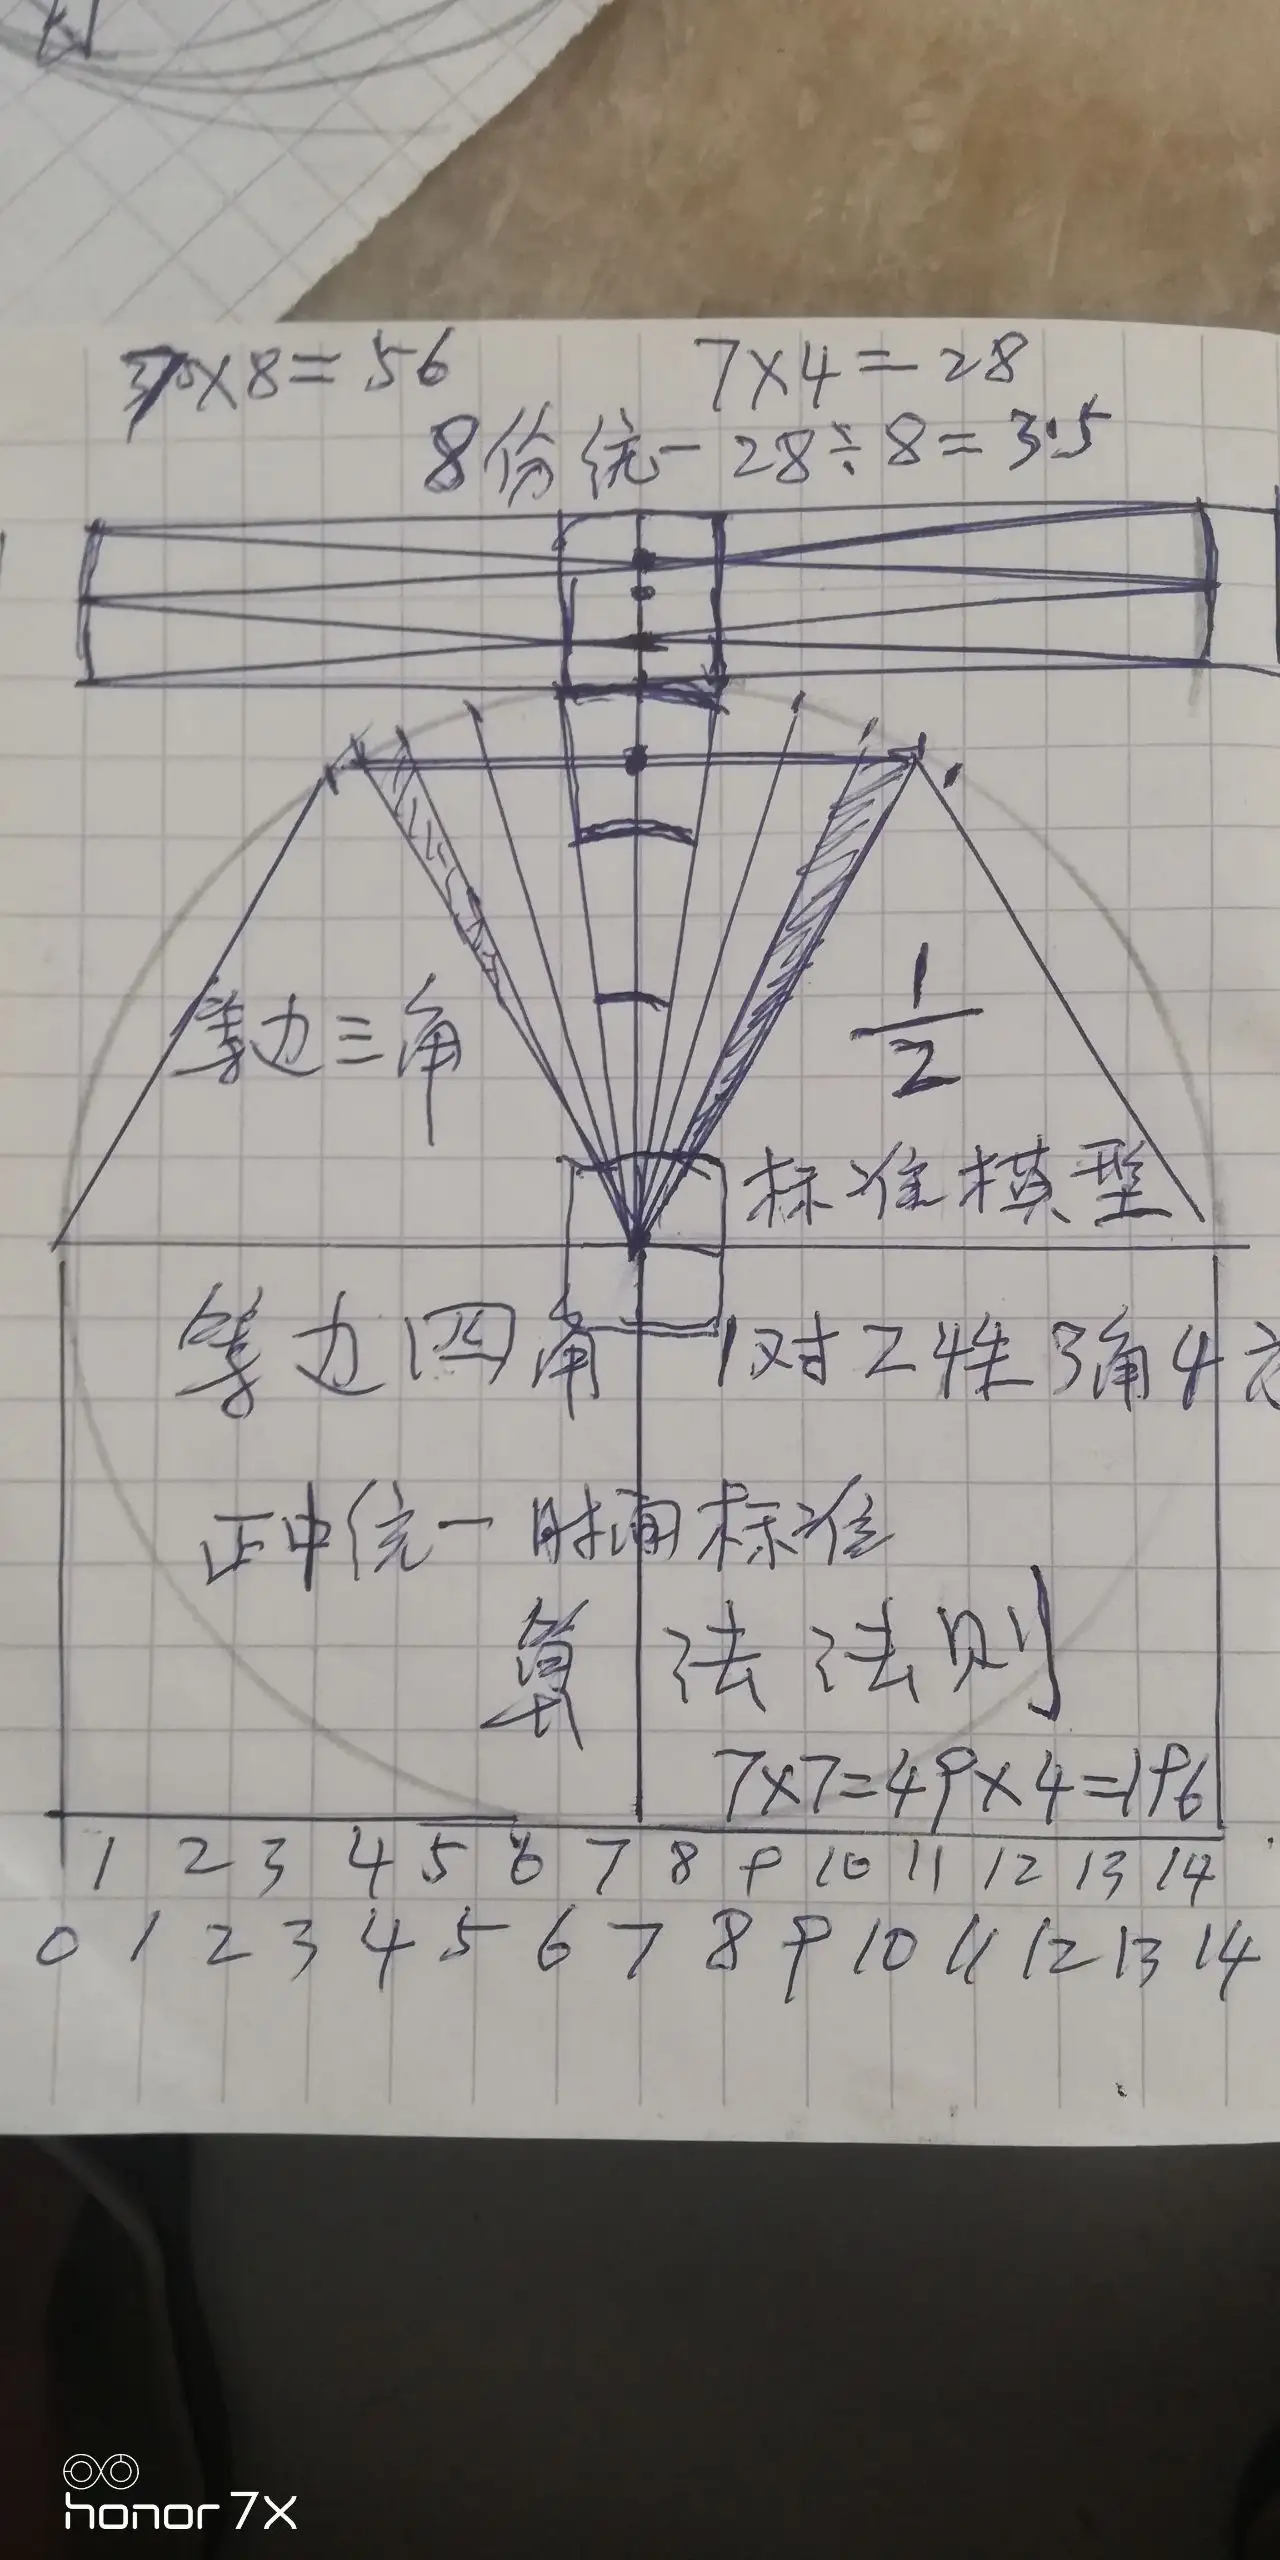 ×8=56 7×4=28
8份统一28÷8=3.5
等边三角
1/2
标准模型
等边四角 1对2性3角4
正中统一时间标准
算法法则
7×7=49×4=196
1 2 3 4 5 6 7 8 9 10 11 12 13 14
0 1 2 3 4 5 6 7 8 9 10 11 12 13 14
honor 7X